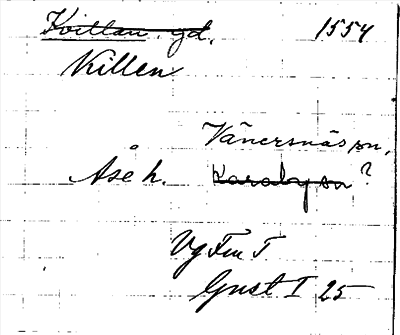 Kvillan gd. 1554
Killen
Vänersnäs sn,
Åse h. Karaby sn ?
Vg Fm T
Gust I 25